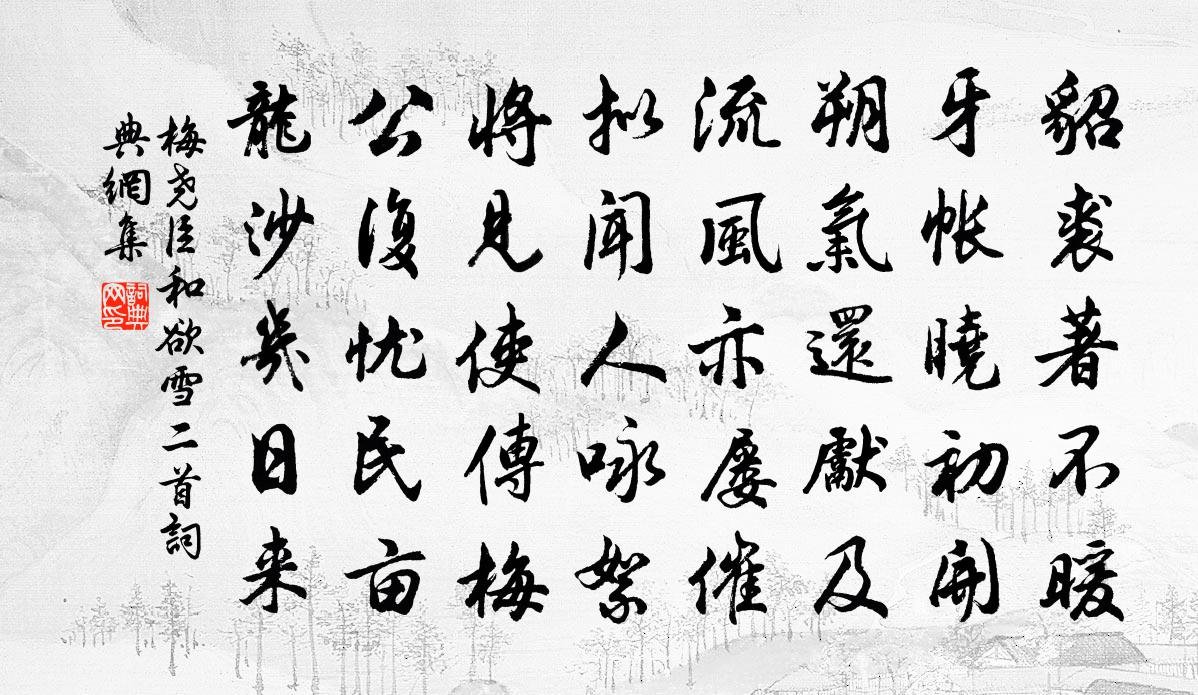 貂裘著不暖
牙帐曉初開
朔氣還獻及
流風亦屡催
拟聞人咏絮
将見使傳梅
公復忧民亩
龍沙幾日来
梅尧臣和欲雪二首詞
典網集
詞典网印